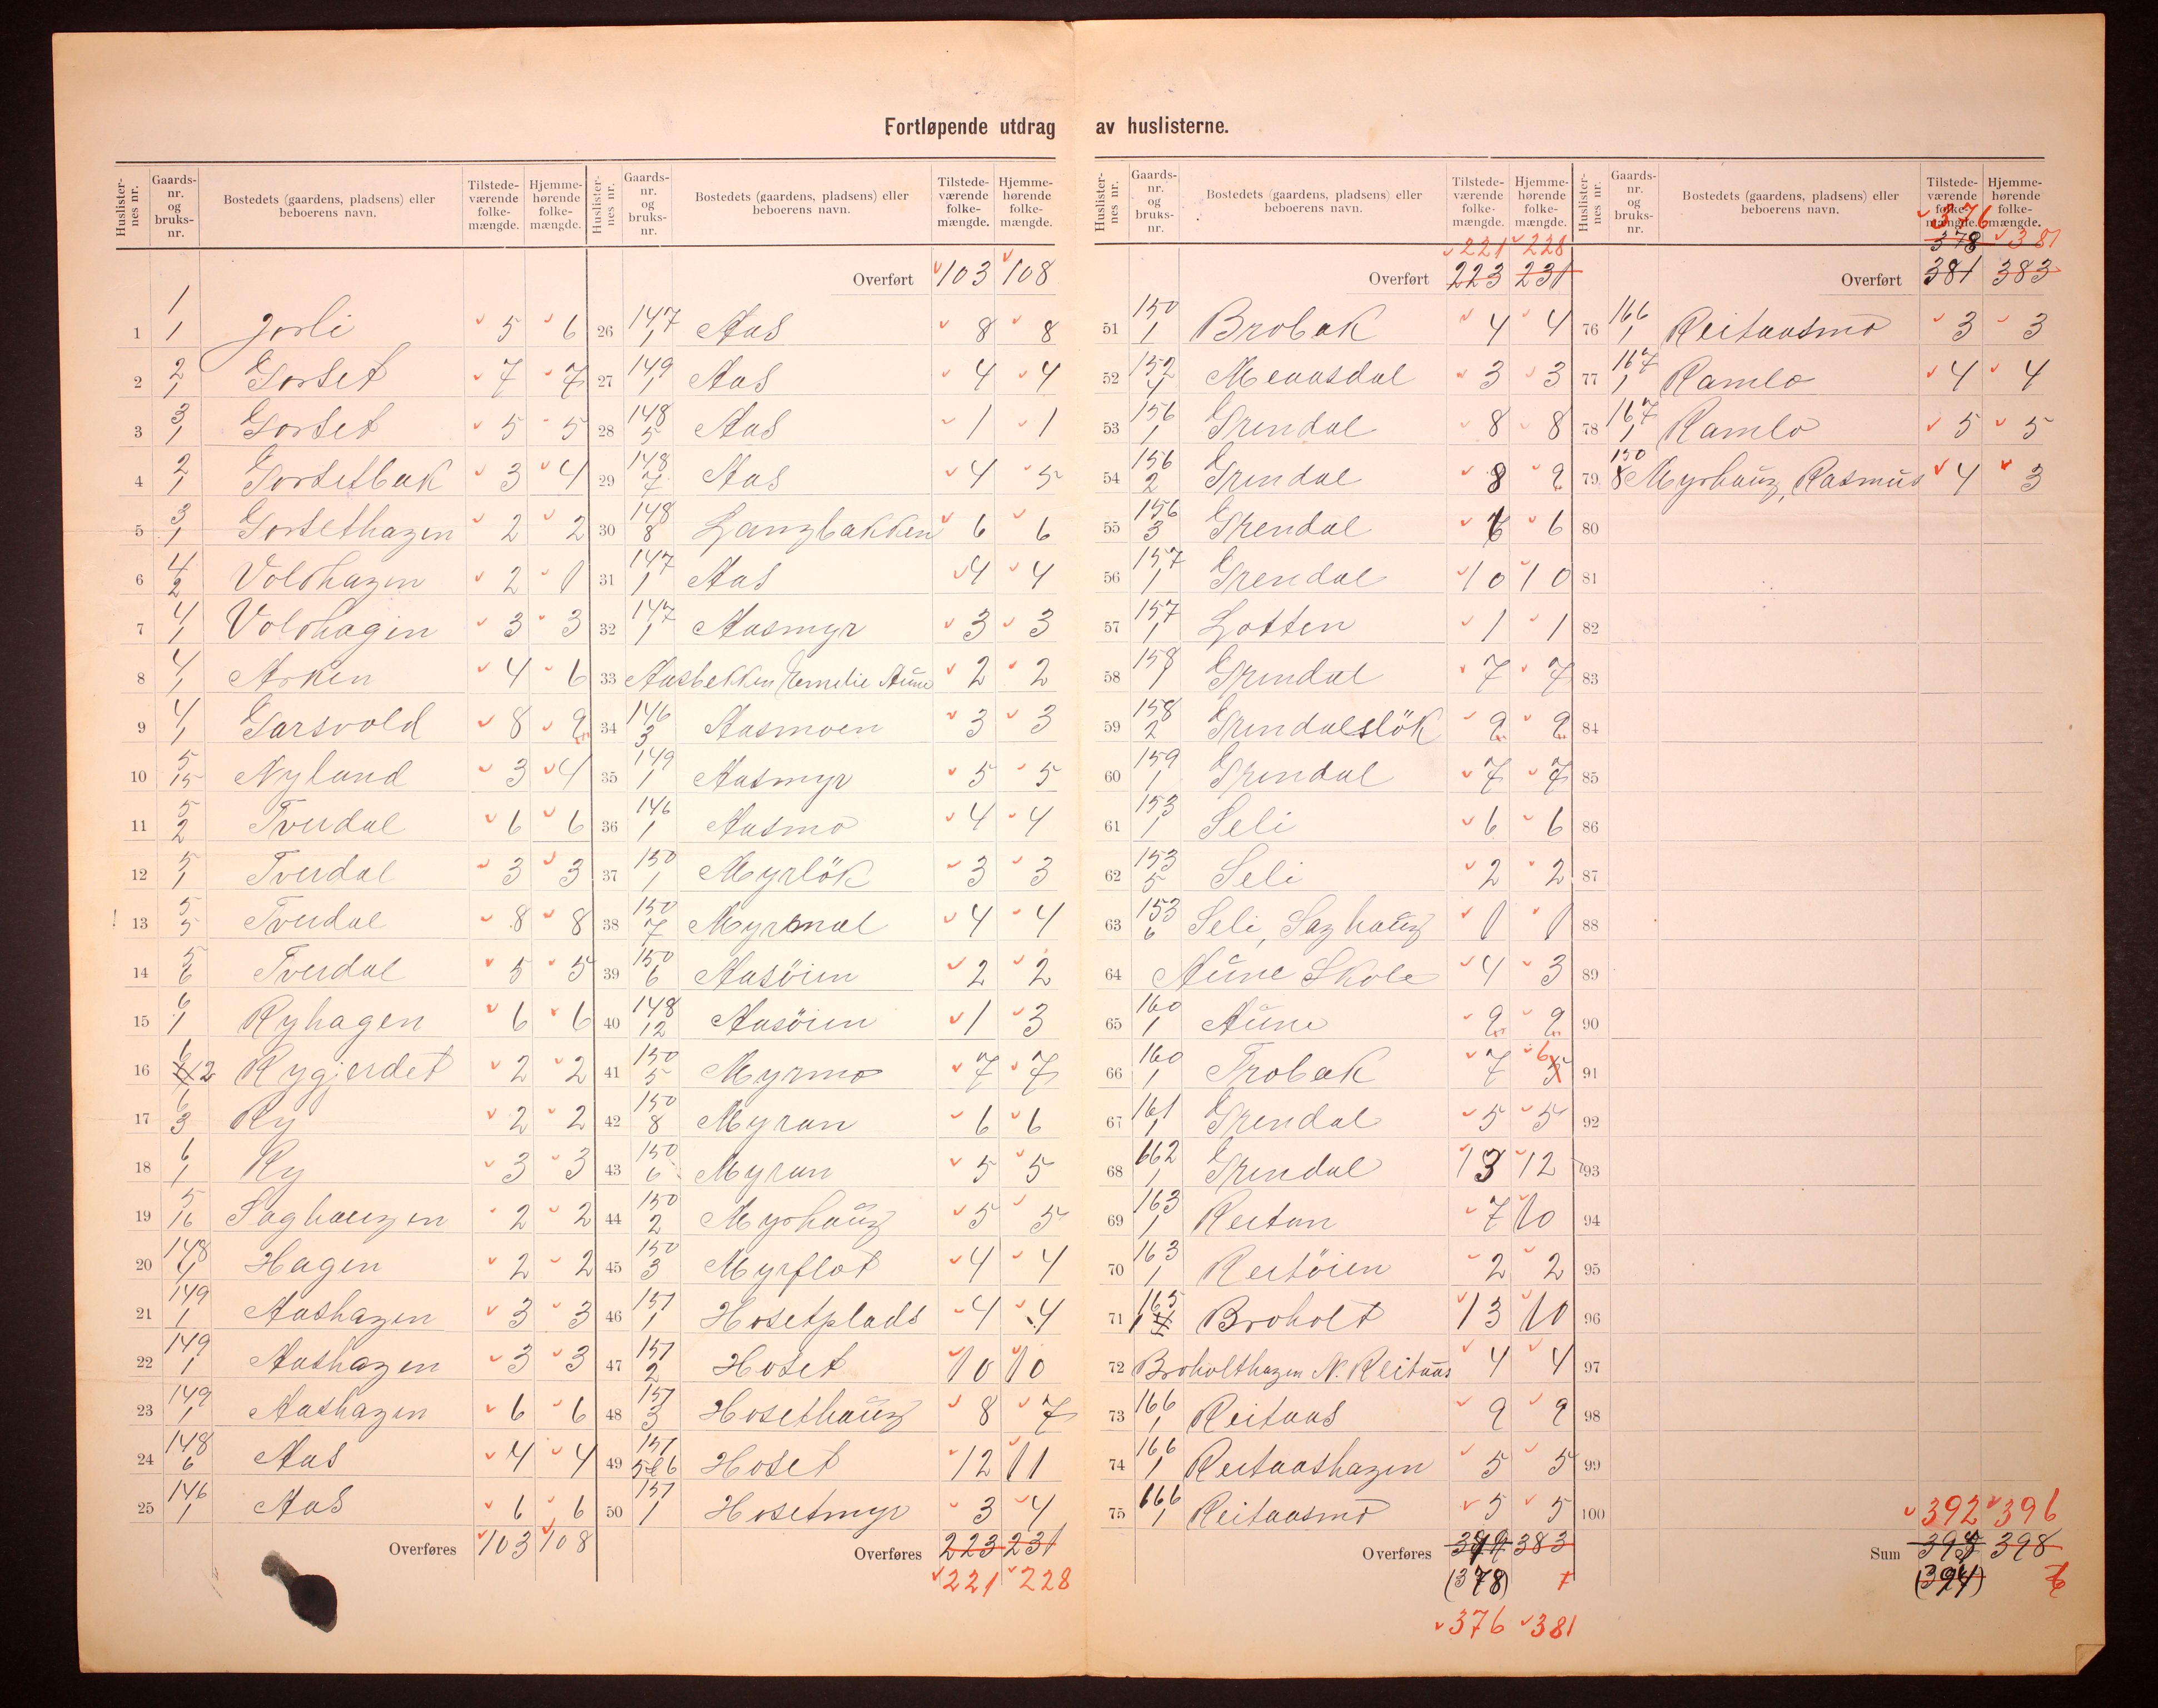 Fortløpende utdrag av huslisterne.
Huslister-nes nr. | Gaards-nr. og bruks-nr. | Bostedets (gaardens, pladsens) eller beboerens navn. | Tilstede-værende folke-mængde. | Hjemme-hørende folke-mængde.
1 1/1 Jorli 5 6
2 2/1 Gorset 7 7
3 3/1 Gorset 5 5
4 2/1 Gorsetbak 3 4
5 3/1 Gorsethagen 2 2
6 4/2 Voldhagen 2 1
7 4/1 Voldhagen 3 3
8 4/1 Arken 4 6
9 4/1 Garsvold 8 9
10 5/15 Nyland 3 4
11 5/2 Tverdal 6 6
12 5/1 Tverdal 3 3
13 5/5 Tverdal 8 8
14 5/6 Tverdal 5 5
15 6/1 Ryhagen 6 6
16 6/2 Rygjerdet 2 2
17 6/3 Ry 2 2
18 6/1 Ry 3 3
19 5/16 Saghaugen 2 2
20 148/4 Hagen 2 2
21 149/1 Aashagen 3 3
22 149/1 Aashagen 3 3
23 149/1 Aashagen 6 6
24 148/6 Aas 4 4
25 146/1 Aas 6 6
Overføres 103 108
Huslister-nes nr. | Gaards-nr. og bruks-nr. | Bostedets (gaardens, pladsens) eller beboerens navn. | Tilstede-værende folke-mængde. | Hjemme-hørende folke-mængde.
Overført 103 108
26 147/1 Aas 8 8
27 149/1 Aas 4 4
28 148/5 Aas 1 1
29 148/7 Aas 4 5
30 148/8 Langbakken 6 6
31 147/1 Aas 4 4
32 147/1 Aasmyr 3 3
33 Aasbekken Emelie Aune 2 2
34 146/3 Aasmoen 3 3
35 149/1 Aasmyr 5 5
36 146/1 Aasmo 4 4
37 150/1 Myrlök 3 3
38 150/7 Myrmal 4 4
39 150/6 Aasöien 2 2
40 148/12 Aasöien 1 3
41 150/5 Myrmo 7 7
42 150/8 Myran 6 6
43 150/6 Myran 5 5
44 150/2 Myrhaug 5 5
45 150/3 Myrflot 4 4
46 151/1 Hosetplads 4 4
47 151/2 Hoset 10 10
48 151/3 Hosethaug 8 7
49 151/5 & 6 Hoset 12 11
50 151/1 Hosetmyr 3 4
Overføres 223 231
221 228
Huslister-nes nr. | Gaards-nr. og bruks-nr. | Bostedets (gaardens, pladsens) eller beboerens navn. | Tilstede-værende folke-mængde. | Hjemme-hørende folke-mængde.
221 228
Overført 223 231
51 150/1 Brobak 4 4
52 152/4 Meaasdal 3 3
53 156/1 Grendal 8 8
54 156/2 Grendal 8 9
55 156/3 Grendal 6 6
56 157/1 Grendal 10 10
57 157/1 Lotten 1 1
58 158/1 Grendal 7 7
59 158/2 Grendalslök 9 9
60 159/1 Grendal 7 7
61 153/1 Seli 6 6
62 153/5 Seli 2 2
63 153/6 Seli, Saghaug 1 1
64 Aune Skole 4 3
65 160/1 Aune 9 9
66 160/1 Trobak 7 6
67 161/1 Grendal 5 5
68 162/1 Grendal 13 12
69 163/1 Reitan 7 10
70 163/1 Reitöien 2 2
71 165/1 Broholt 13 10
72 Broholthagen N. Reitaas 4 4
73 166/1 Reitaas 9 9
74 166/1 Reitaashagen 5 5
75 166/1 Reitaasmo 5 5
Overføres 383
(378)
376 381
Huslister-nes nr. | Gaards-nr. og bruks-nr. | Bostedets (gaardens, pladsens) eller beboerens navn. | Tilstede-værende folke-mængde. | Hjemme-hørende folke-mængde.
376
378 381
Overført 381 383
76 166/1 Reitaasmo 3 3
77 167/1 Ramlo 4 4
78 167/1 Ramlo 5 5
79 150/8 Myrhaug, Rasmus 4 3
80
81
82
83
84
85
86
87
88
89
90
91
92
93
94
95
96
97
98
99
100
392 396
Sum 398
(394)